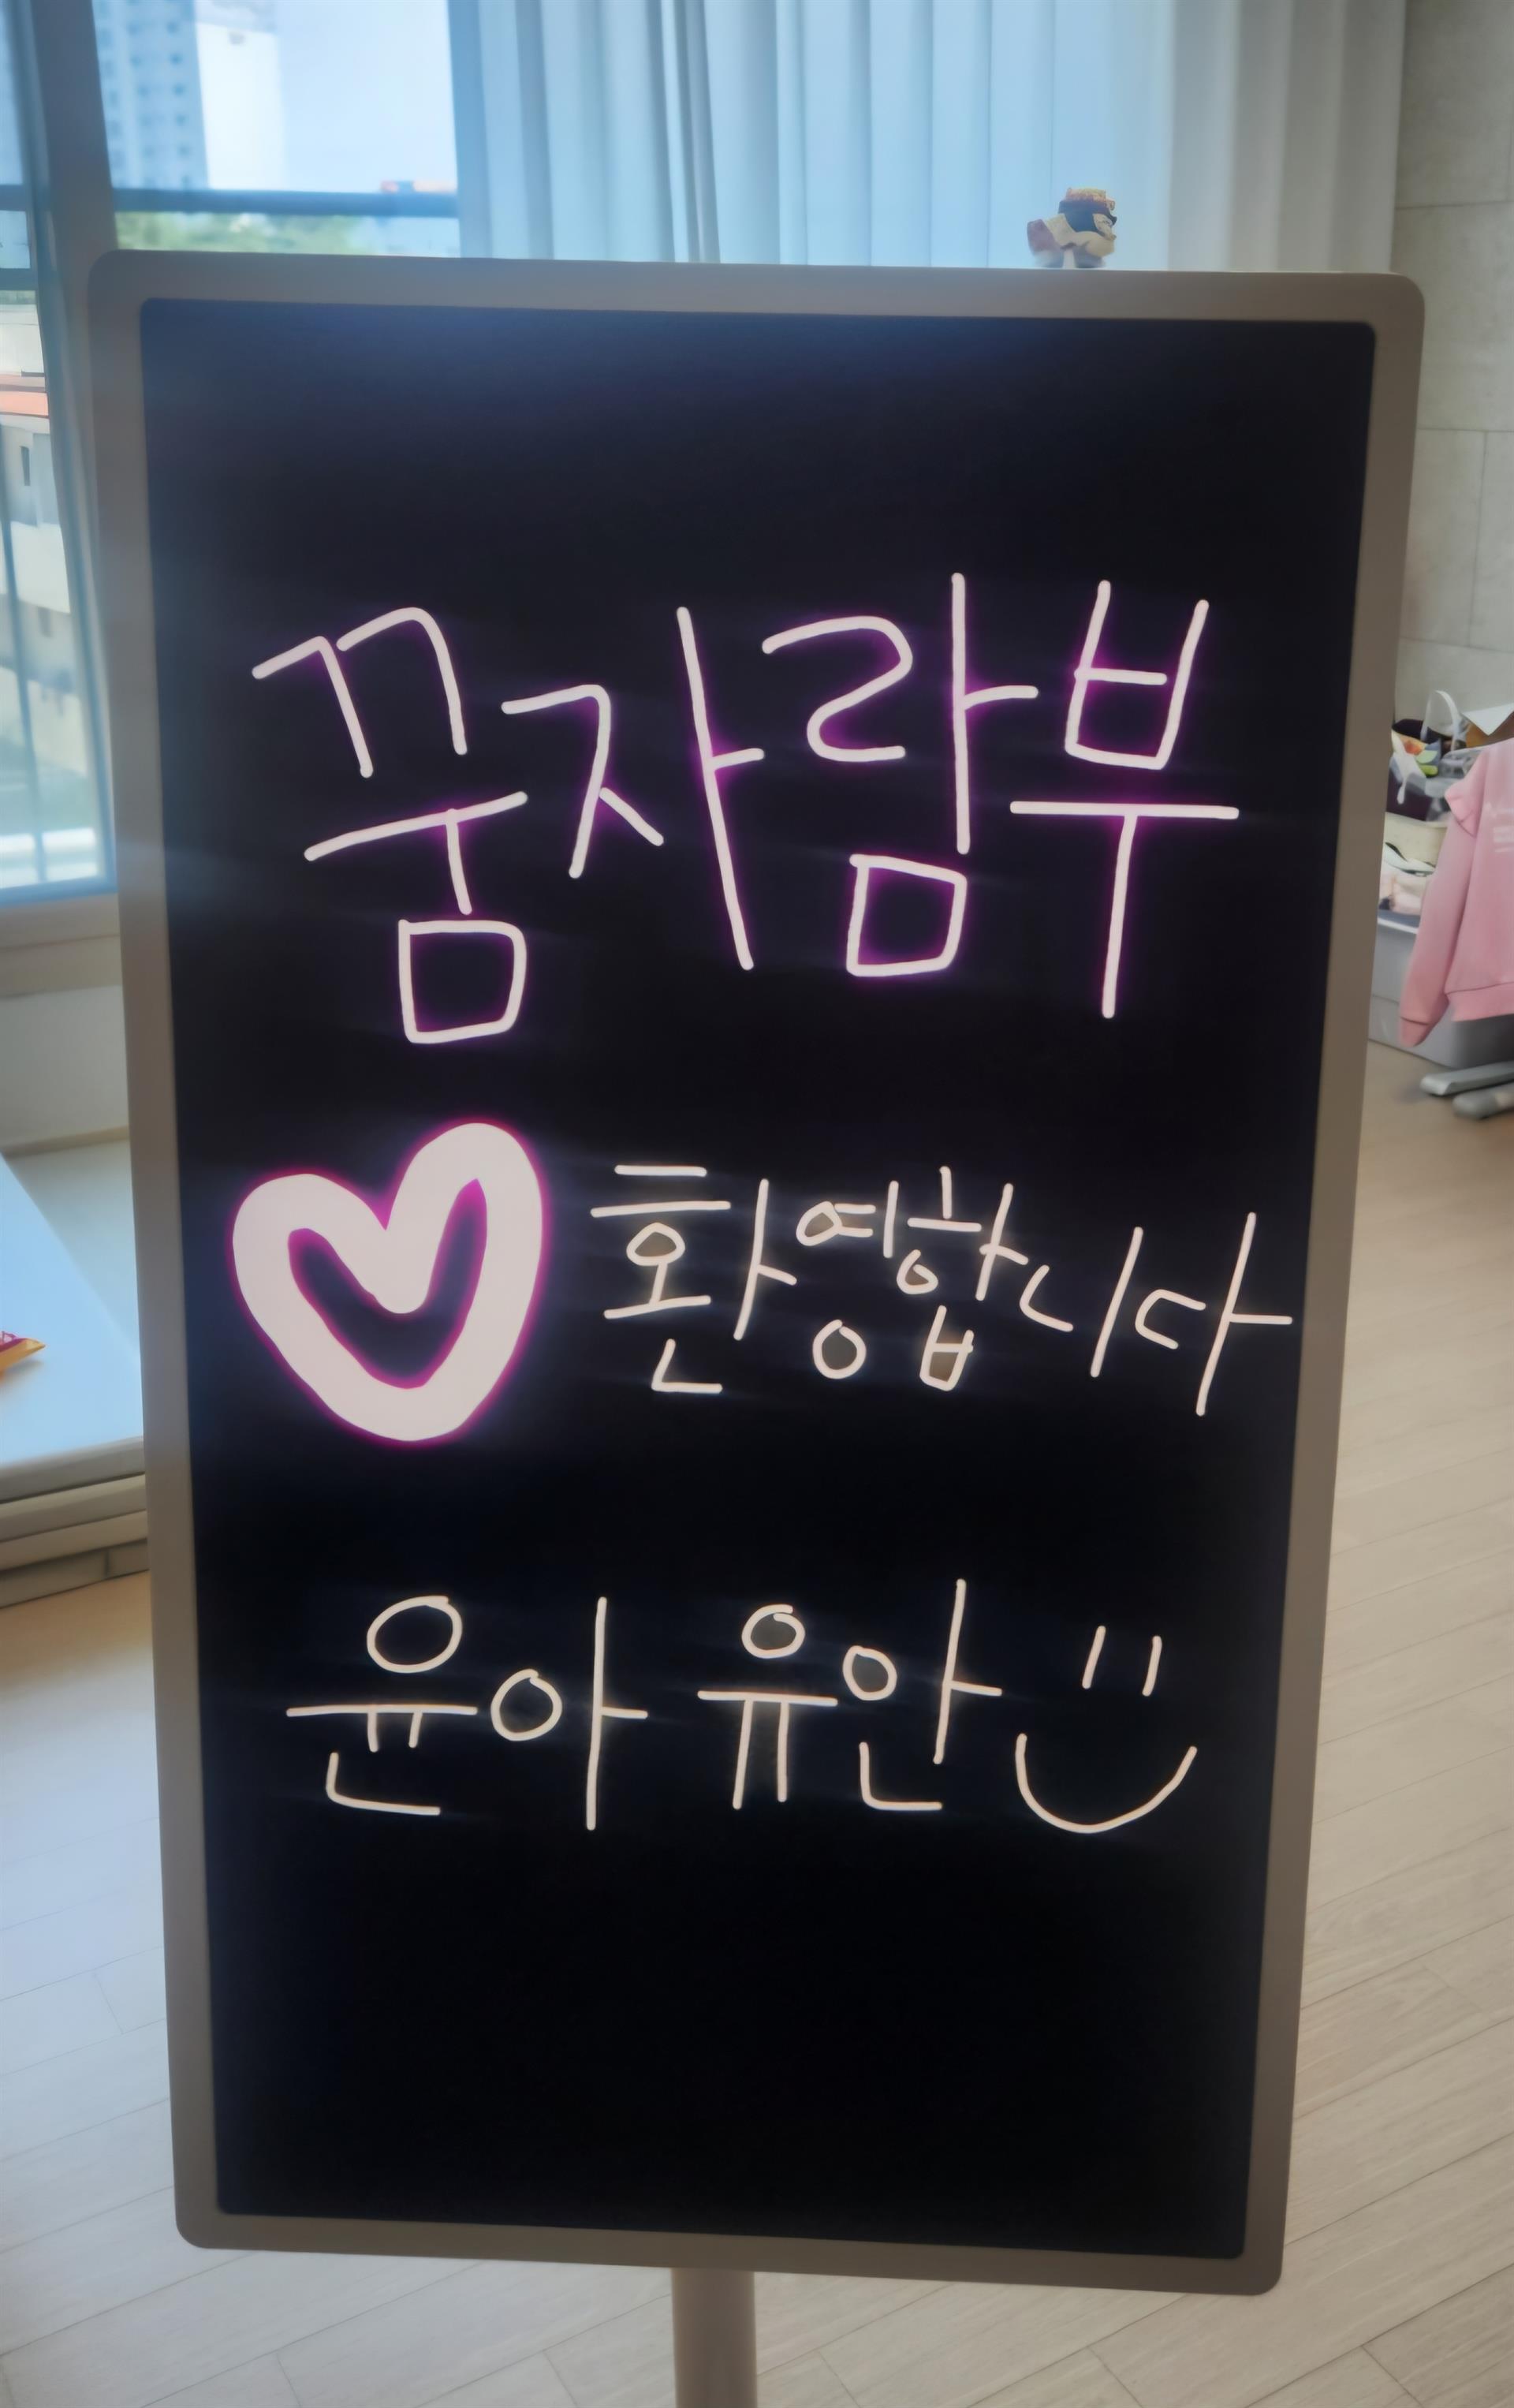 꿈자람부
환영합니다
윤아 유안